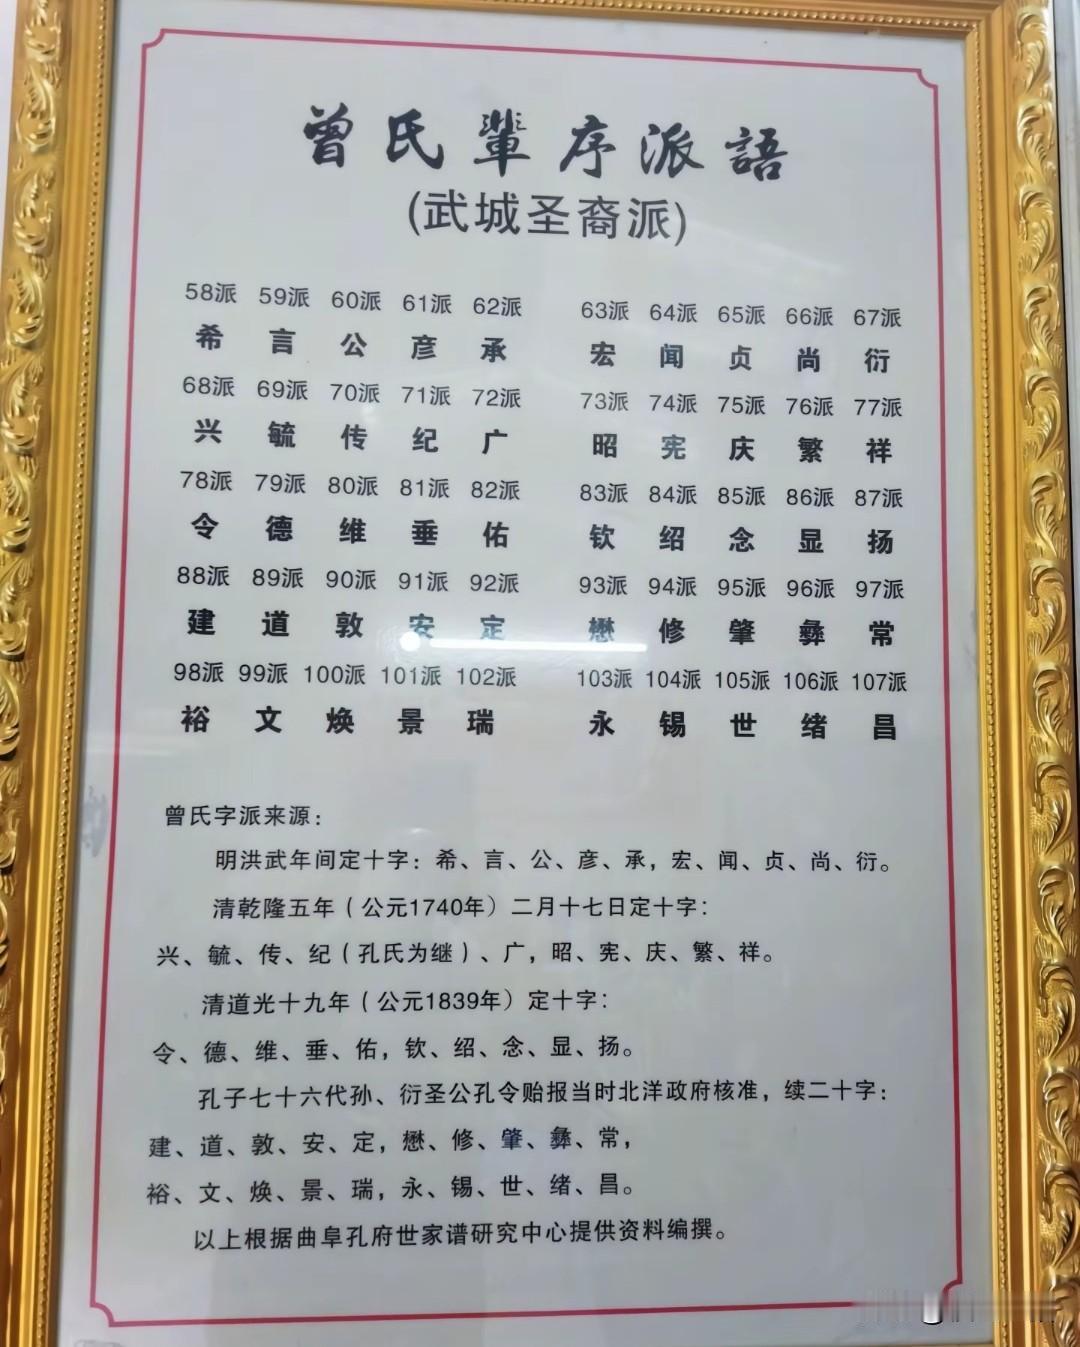 曾氏輩序派語
(武城圣裔派)
58派 59派 60派 61派 62派 63派 64派 65派 66派 67派
希 言 公 彦 承 宏 闻 贞 尚 衍
68派 69派 70派 71派 72派 73派 74派 75派 76派 77派
兴 毓 传 纪 广 昭 宪 庆 繁 祥
78派 79派 80派 81派 82派 83派 84派 85派 86派 87派
令 德 维 垂 佑 钦 绍 念 显 扬
88派 89派 90派 91派 92派 93派 94派 95派 96派 97派
建 道 敦 安 定 懋 修 肇 彝 常
98派 99派 100派 101派 102派 103派 104派 105派 106派 107派
裕 文 焕 景 瑞 永 锡 世 绪 昌
曾氏字派来源：
明洪武年间定十字：希、言、公、彦、承，宏、闻、贞、尚、衍。
清乾隆五年（公元1740年）二月十七日定十字：
兴、毓、传、纪（孔氏为继）、广，昭、宪、庆、繁、祥。
清道光十九年（公元1839年）定十字：
令、德、维、垂、佑，钦、绍、念、显、扬。
孔子七十六代孙、衍圣公孔令贻报当时北洋政府核准，续二十字：
建、道、敦、安、定，懋、修、肇、彝、常，
裕、文、焕、景、瑞，永、锡、世、绪、昌。
以上根据曲阜孔府世家谱研究中心提供资料编撰。